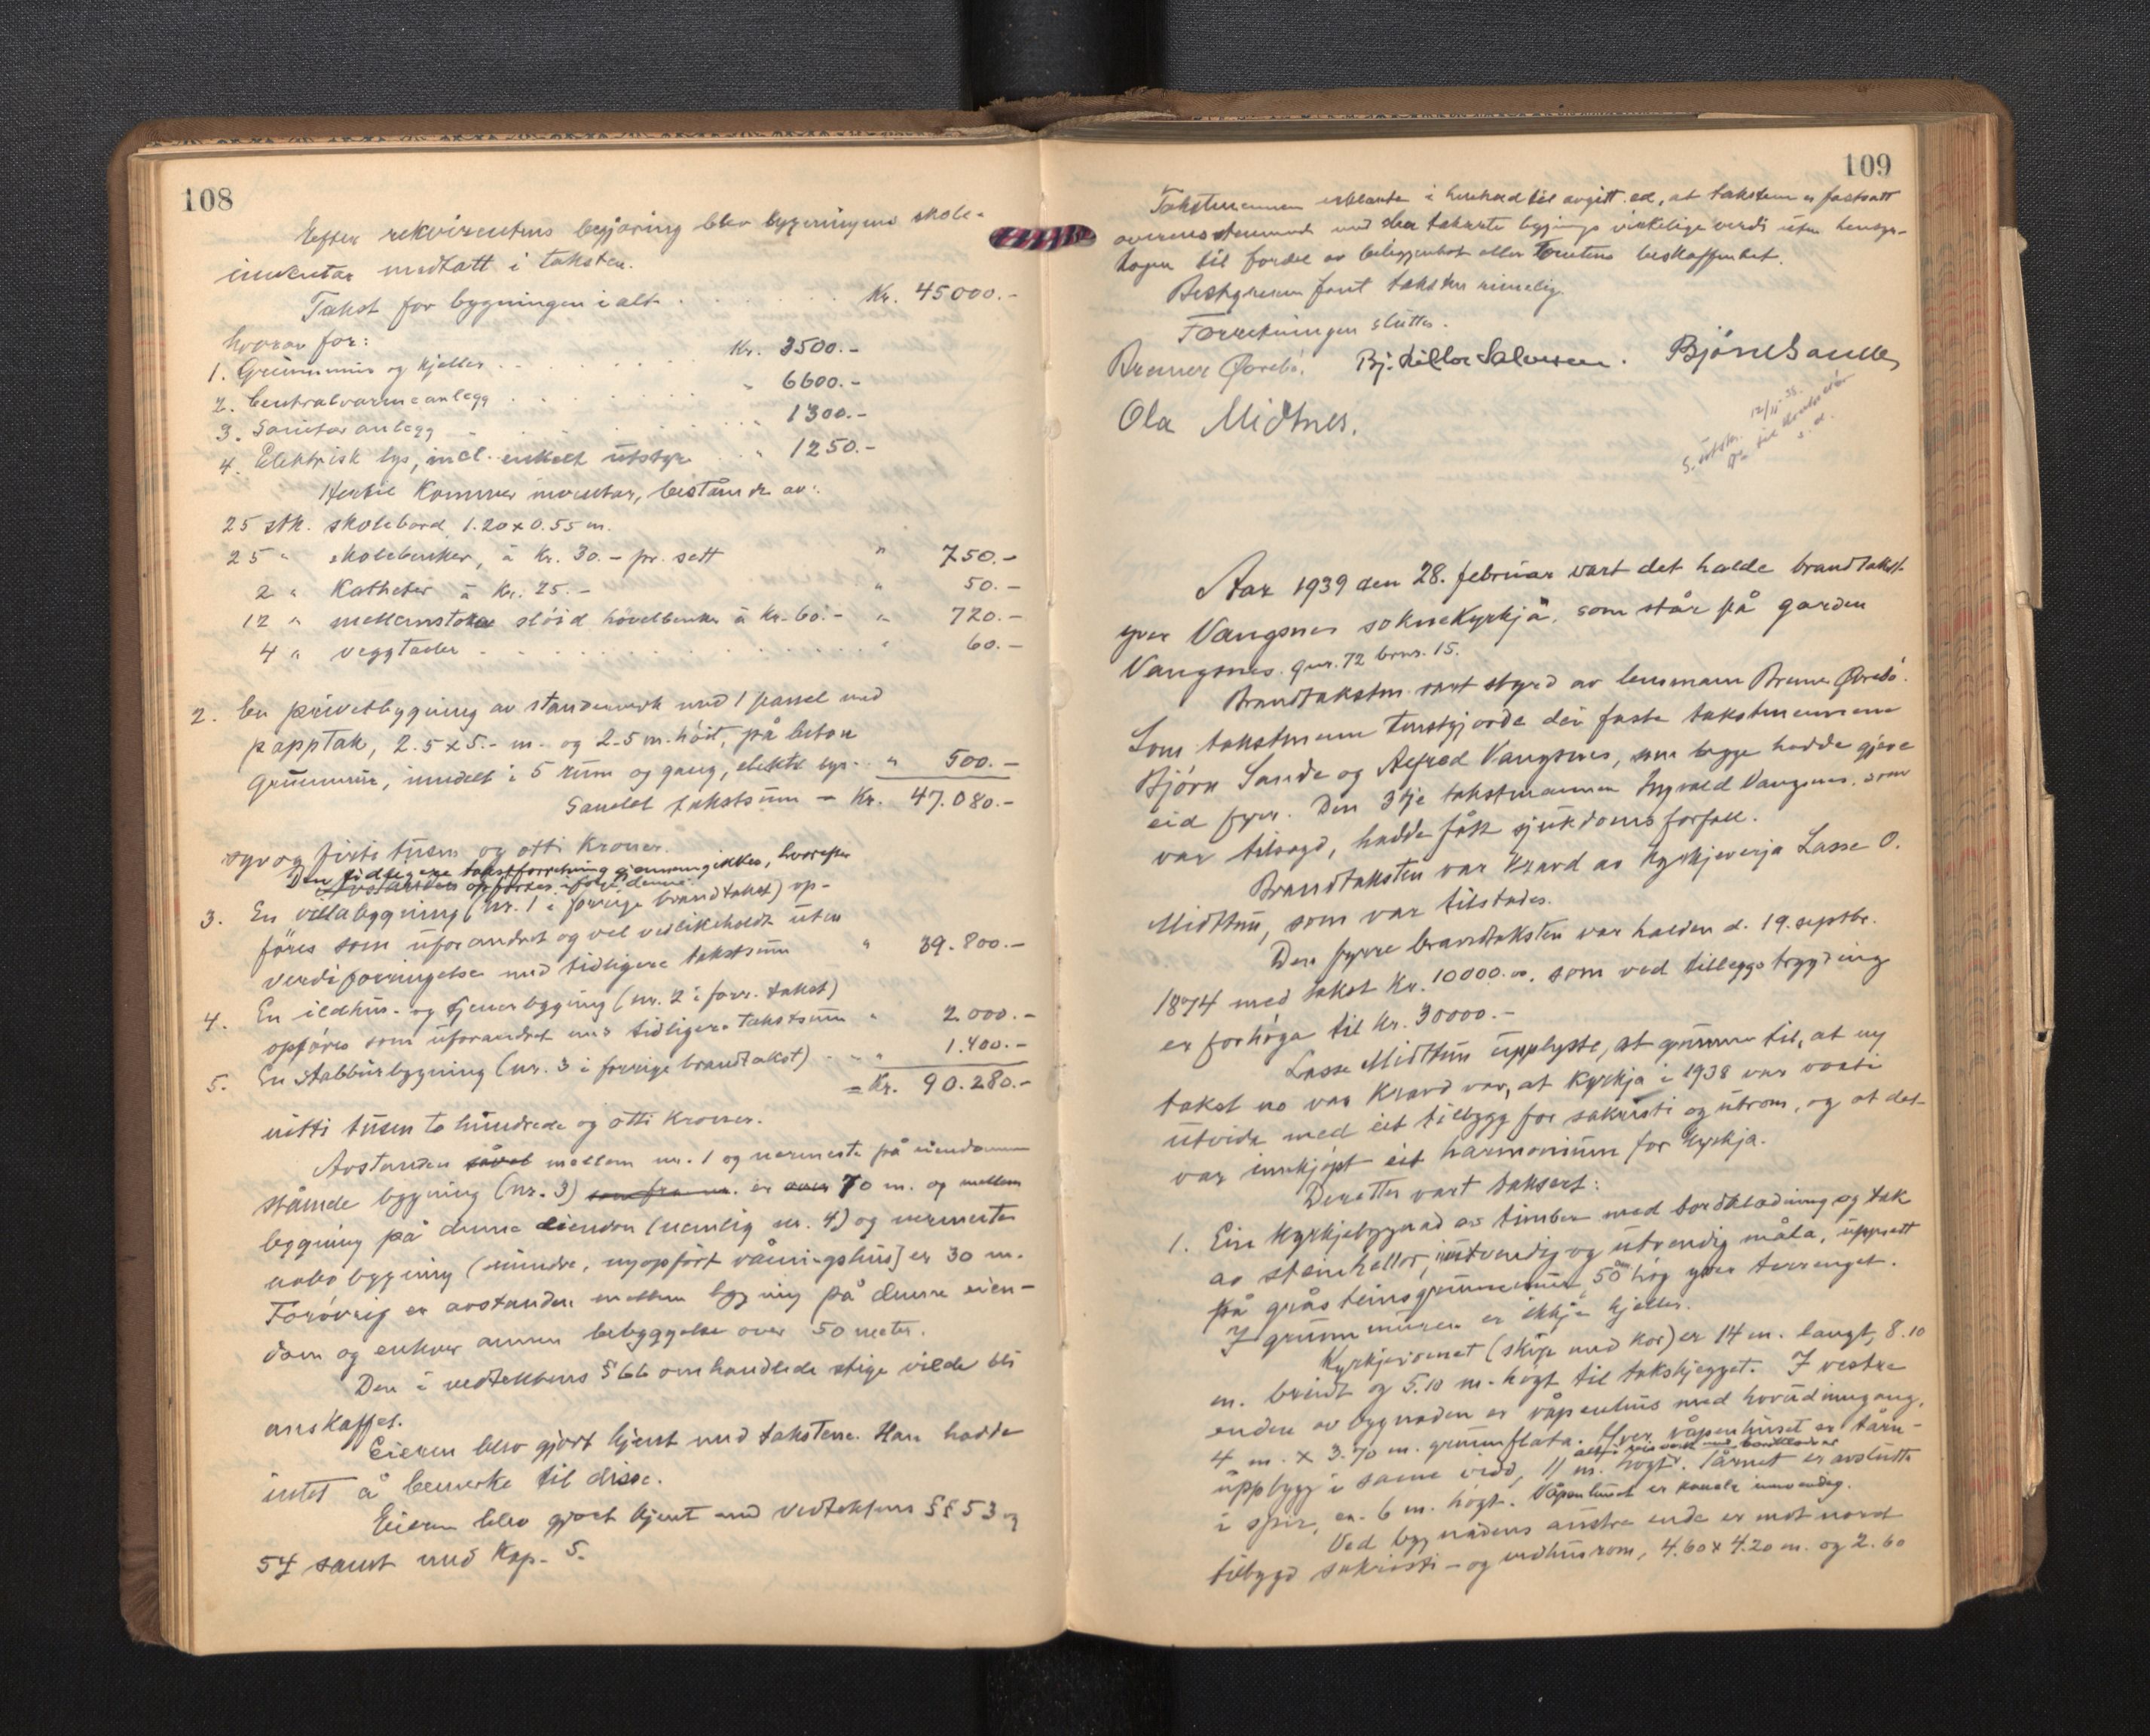 108
Efter rekvirentens begjæring blev bygningens skole-
inventar medtatt i taksten.
Takst for bygningen i alt . . . . . . Kr. 45000.-
hvorav for:
1. Grunnmur og kjeller . . . . . . Kr. 3500.-
2. Centralvarmeanlegg . . . . . . " 6600.-
3. Sanitæranlegg . . . . . . " 1300.-
4. Elektrisk lys, incl. enkelt utstyr . . " 1250.-
Hertil kommer inventar, bestående av:
25 stk. skolebord 1.20 x 0.55 m.
25 " skolebenker, à Kr. 30.- pr. sett " 750.-
2 " Katheter à Kr. 25.- " 50.-
12 " mellemstore sløid høvelbenker à Kr. 60.- " 720.-
4 " veggtavler . . . . . . " 60.-
2. En privetbygning av standerverk med 1 panel med
papptak, 2.5 x 5.- m. og 2.5 m. høit, på beton
grunnmur, inndelt i 5 rum og gang, elektr. lys. . " 500.-
Samlet takstsum = Kr. 47.080.-
syv og firti tusen og otti Kroner.
Den tidligere takstforretning gjennemgikkes, hvorefter
opføres denne
3. En villabygning (nr. 1 i forrige brandtakst) op-
føres som uforandret og vel vedlikeholdt uten
verdiforringelse med tidligere takstsum " 39.800.-
4. En ildhus- og fjøsbygning (nr. 2 i forr. takst)
opføres som uforandret med tidligere takstsum " 2.000.-
5. En stabbursbygning (nr. 3 i forrige brandtakst) . . " 1.400.-
= Kr. 90.280.-
nitti tusen to hundrede og otti Kroner.
Avstanden såvel mellem nr. 1 og nærmeste på eiendommen
stående bygning (nr. 3) er over 70 m. og mellem
bygning på denne eiendom (nemlig nr. 4) og nærmeste
nabobygning (mindre, nyopført våningshus) er 30 m.
Forøvrig er avstanden mellem bygning på denne eien-
dom og enhver annen bebyggelse over 50 meter.
Den i vedtektens § 66 omhandlede stige vilde bli
anskaffet.
Eieren blev gjort kjent med takstene. Han hadde
intet å bemerke til disse.
Eieren blev gjort kjent med vedtektens §§ 53 og
54 samt med Kap. 5.
109
Takstmennene erklærte i henhold til avgitt ed, at taksten er fastsatt
overensstemmende med den takserte bygnings virkelige verdi uten hensyn-
tagen til fordel av beliggenhet eller Tomtens beskaffenhet.
Bestyreren fant taksten rimelig.
Forretningen sluttes.
Bremer Øvrebø. Bj. Salvesen. Bjørn Sande
Ola Midtnes.
12/11 38
Aar 1939 den 28. februar vart det halde brandtakst
yver Vangsnes soknekyrkja, som står på garden
Vangsnes gnr. 72 brnr. 15.
Brandtaksten vart styrd av lensmann Bremer Øvrebø.
Som takstmenn tenestgjorde dei faste takstmennene
Bjørn Sande og Alfred Vangsnes, som begge hadde gjeve
eid fyrr. Den 3dje takstmannen Ingvald Vangsnes, som
var tilsagd, hadde fått sjukdomsforfall.
Brandtaksten var kravd av kyrkjeverja Lasse O.
Midttun, som var tilstades.
Den fyrre brandtaksten var halden d. 19. septbr.
1874 med takst Kr. 10000.00, som ved tilleggstrygding
er forhøga til Kr. 30000.-
Lasse Midttun upplyste, at grunnen til, at ny
takst no var kravd var, at kyrkja i 1938 var vorti
utvida med eit tilbygg for sakristi og utrom, og at det
var innkjøpt eit harmonium for kyrkja.
Deretter vart taksert:
1. Ein kyrkjebygnad av timber med bordklædning og tak
av steinhellor, innvendig og utvendig måla, uppsett
på gråsteinsgrunnmur, 50 cm høg yver terrenget.
I grunnmuren er ikkje kjeller.
Kyrkjeromet (skip med kor) er 14 m. langt, 8.10
m. breidt og 5.10 m. høgt til takskjegget. I vestre
enden av bygnaden er våpenhus med hovudinngang,
4 m. x 3.70 m. grunnflata. Yver våpenhuset er tårn-
uppbygg i same vidd, 11 m. høgt. Tårnet er avslutta
i spir, ca. 6 m. høgt. Våpenhuset er innvendig.
Ved bygnadens austre ende er mot nord
tilbygd sakristi- og vedhusrom, 4.60 x 4.20 m. og 2.60